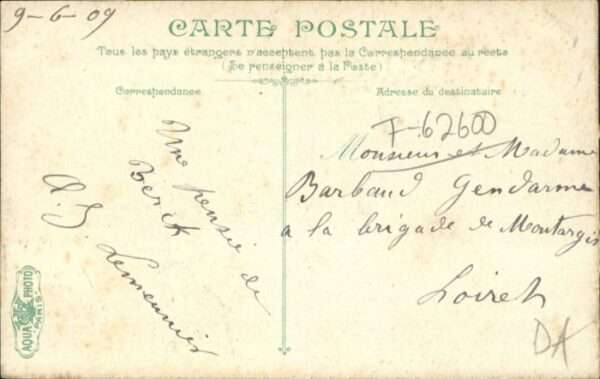 9-6-09
CARTE POSTALE
Tous les pays étrangers n'acceptent pas la Correspondance au recto
(Se renseigner à la Poste)
Correspondance
Adresse du destinataire
F-62600
Monsieur et Madame
Barbaud Gendarme
a la brigade de Montargis
Loiret
Une pensée de
Berck
A. J. Lemeunier
AQUA PHOTO
PARIS
DA